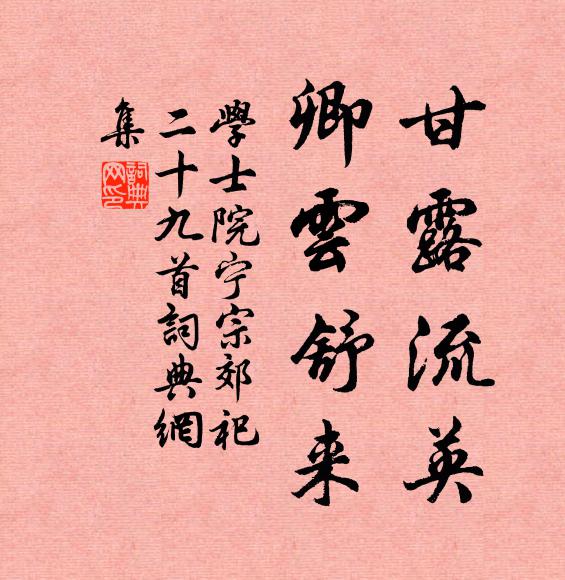 甘露流英
卿雲舒来
學士院宁宗郊祀
二十九首詞典網
集
詞典
网印